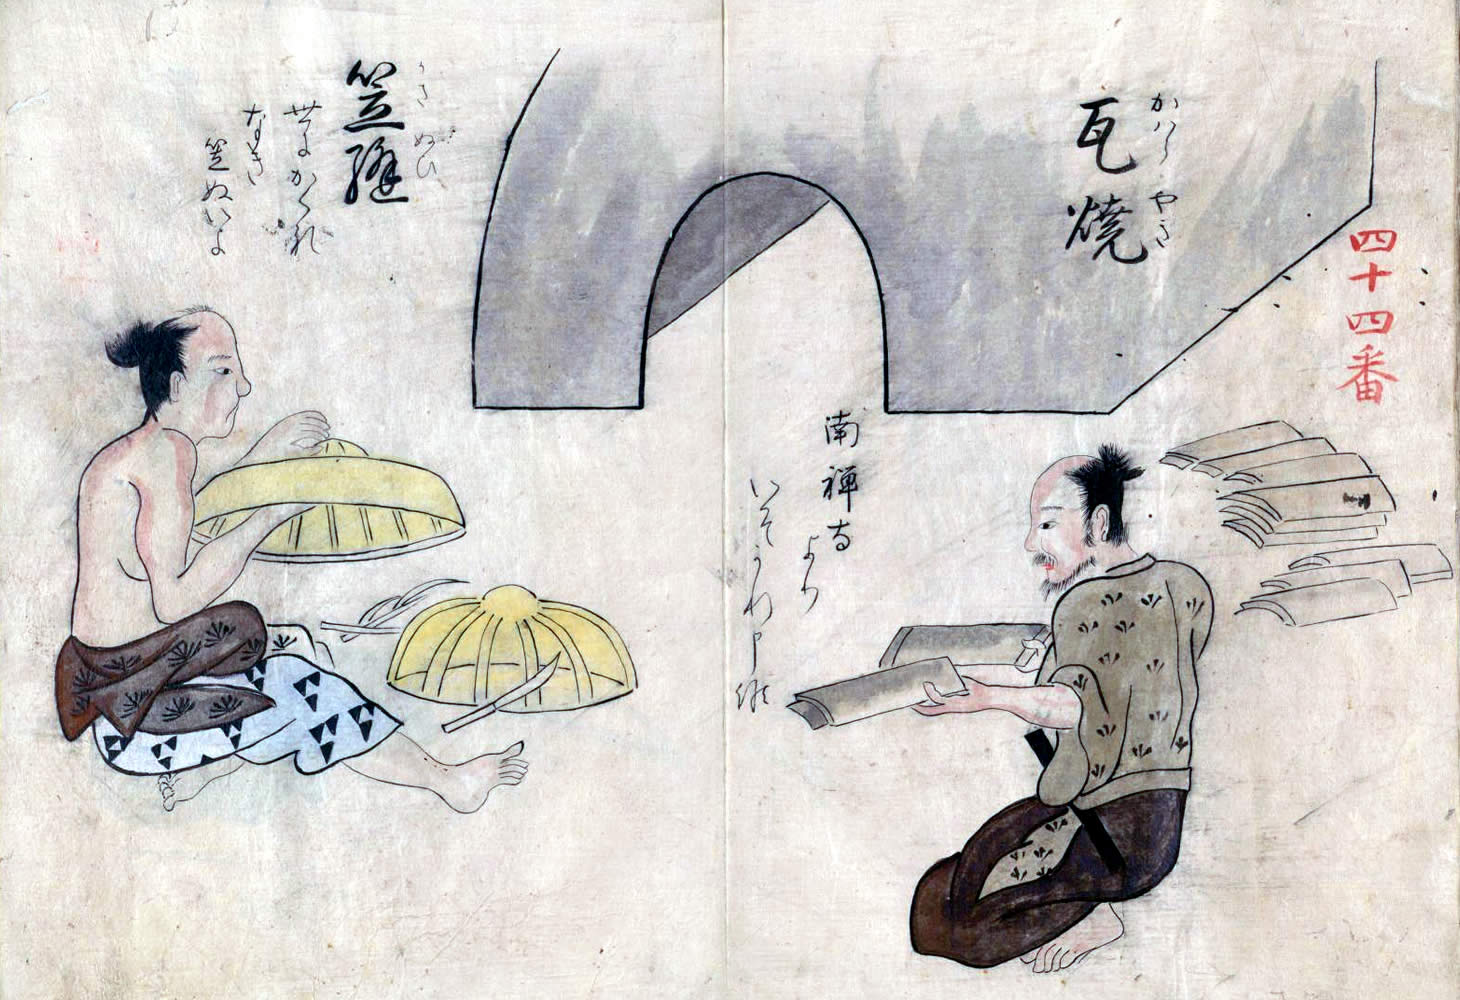 四十四番
かはらやき
瓦燒
南禪寺
より
いそかれ申候
かさぬひ
笠縫
世にかくれ
なき
笠ぬいよ